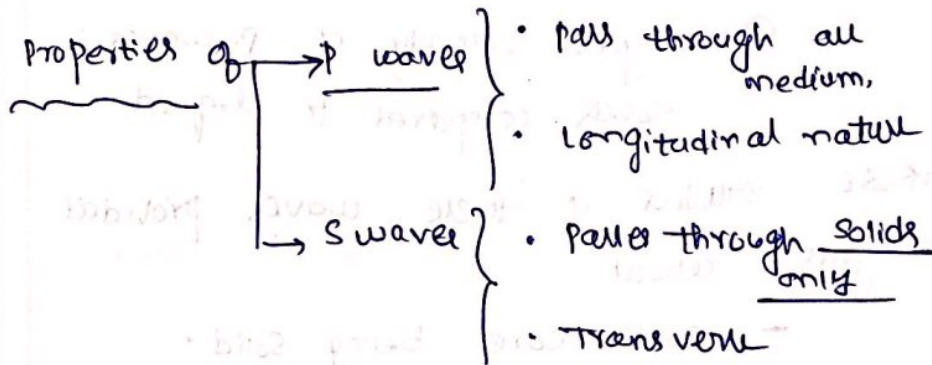 Properties of → P waves
• pass through all
medium.
• longitudinal nature
→ S waves
• Passes through solids
only
• Transverse